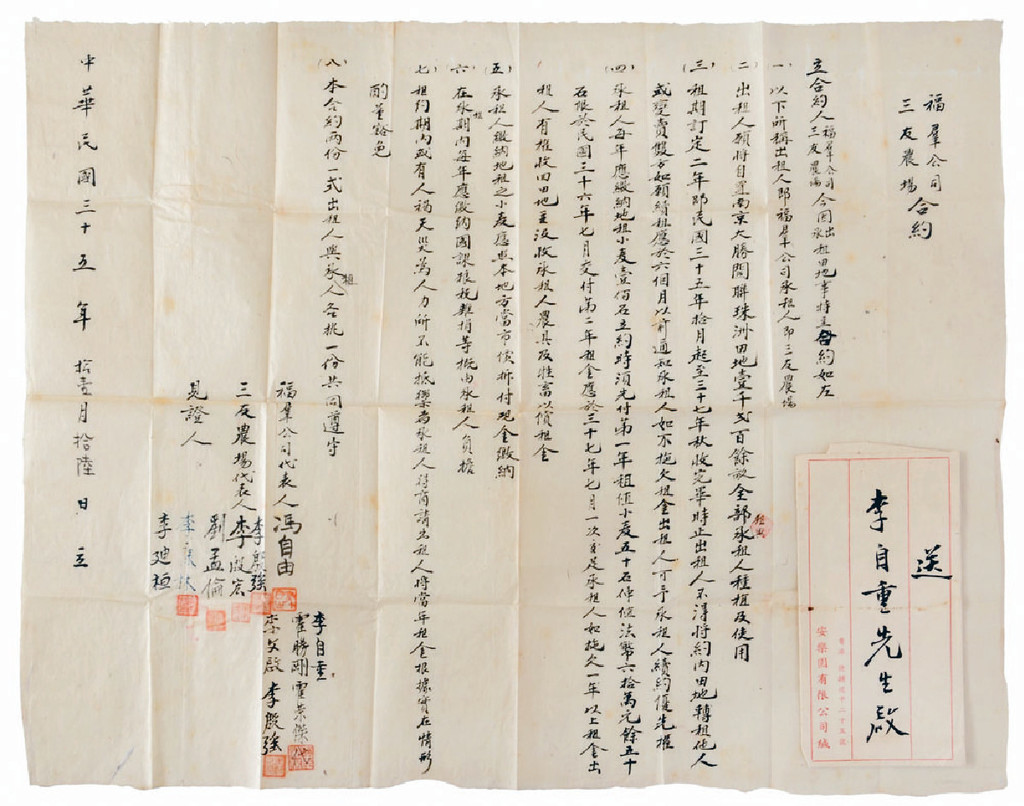 福羣公司
三友農場
合約
立合約人福羣公司三友農場今因出承租田地事特立合約如左
(一)以下所稱出租人即福羣公司承租人即三友農場
(二)出租人願將自置南京大勝關聯珠洲田地壹千弍百餘畝全部承租人種植及使用
租與
(三)租期訂定二年即民國三十五年拾月起至三十七年秋收完畢時止出租人不得將約內田地轉租他人
或變賣雙方如願續租應於六個月以前通知承租人如不拖欠租金出租人可予承租人續約優先權
(四)承租人每年應繳納地租小麥壹佰石立約時須先付第一年租值小麥五十石伸值法幣六拾萬元餘五十
石限於民國三十六年七月交付第二年租金應於三十七年七月一次交足承租人如拖欠一年以上租金出
租人有權收回田地並沒收承租人農具及牲畜以償租金
(五)承租人繳納地租之小麥應照本地方當市價折付現金繳納
(六)在承租期內每年應繳納國課糧稅雜捐等概由承租人負擔
(七)租約期內或有人禍天災為人力所不能抵禦者承租人得商請出租人將當年租金根據實在情形
酌量豁免
(八)本合約兩份一式出租人與承租人各執一份共同遵守
福羣公司代表人馮自由
李自重
霍勝剛
霍榮傑
三友農場代表人李殷強
李啟宏
李文啟
李殷強
見證人
劉孟倫
李廸桓
中華民國三十五年拾壹月拾陸日立
送
李自重先生啟
安樂園有限公司緘